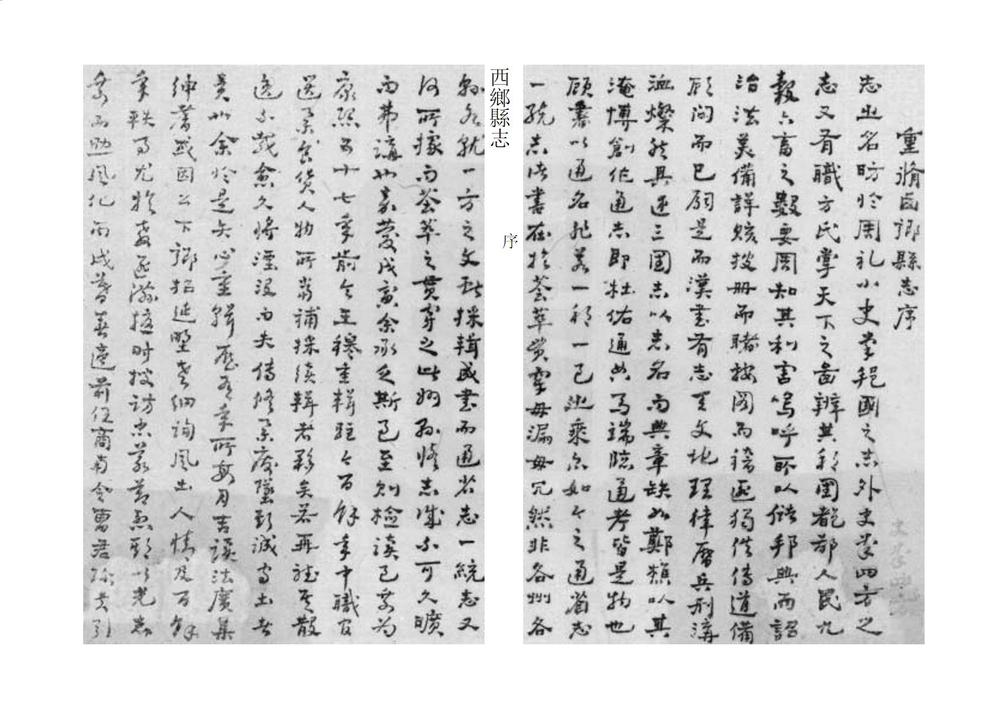 重脩西鄉縣志序
志之名昉於周礼小史掌邦國之志外史掌四方之
志又有職方氏掌天下之圖辨其邦國都鄙人民九
穀六畜之數要周知其利害嗚呼所以儲邦典而詔
治法美備詳賅按册而睹按圖而稽匪獨供傳道備
顧問而已嗣是而漢書有志天文地理律曆兵刑溝
洫燦然具逐三國志以志名而典章缺如鄭樵以其
淹博創作通志即杜佑通典馬端臨通考皆是物也
顧書以通名非若一郡一邑之乘亦如今之通省志
一統志諸書在於薈萃貫穿毋漏毋冗然非各州各
縣各就一方之文獻採輯成書而通省志一統志又
何所據而薈萃之貫穿之此州縣脩志誠不可久曠
而弗講也嘉慶戊寅余承乏斯邑至則檢讀邑乘為
康熙五十七年前令王穆重輯距今百餘年中職官
選舉食貨人物所當補採續輯者夥矣若再聽其散
逸不載愈久將湮没而失傳脩舉廢墜斯誠守土者
責也余於是矢心重輯歷有年所每月吉讀法廣集
紳耆或因公下鄉招延野老細詢風土人情及百餘
年軼事尤於忠逐滌隨時搜訪忠義節烈斯以光志
乘而勵風化丙戌暮春適前任商南令曹君